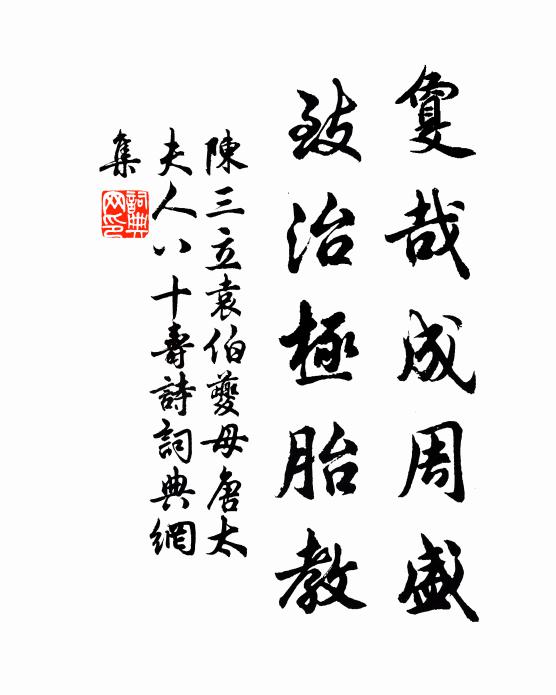 敻哉成周盛
致治極胎教
陳三立袁伯夔母唐太
夫人八十壽詩詞典網
集
詞典網印